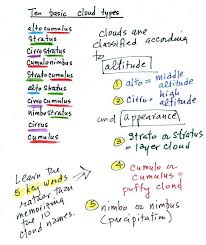 Ten basic cloud types
alto cumulus
Stratus
Cirrostratus
Cumulonimbus
stratocumulus
alto stratus
Cirrocumulus
nimbostratus
Cirrus
Cumulus
Learn the
5 key words
rather than
memorizing
the 10
cloud names.
clouds are
classified according
to
altitude
① alto = middle
altitude
② Cirro = high
altitude
and appearance
③ Strato or Stratus
= layer cloud
④ Cumulo or
Cumulus =
puffy cloud
⑤ nimbo or nimbus
(precipitation)